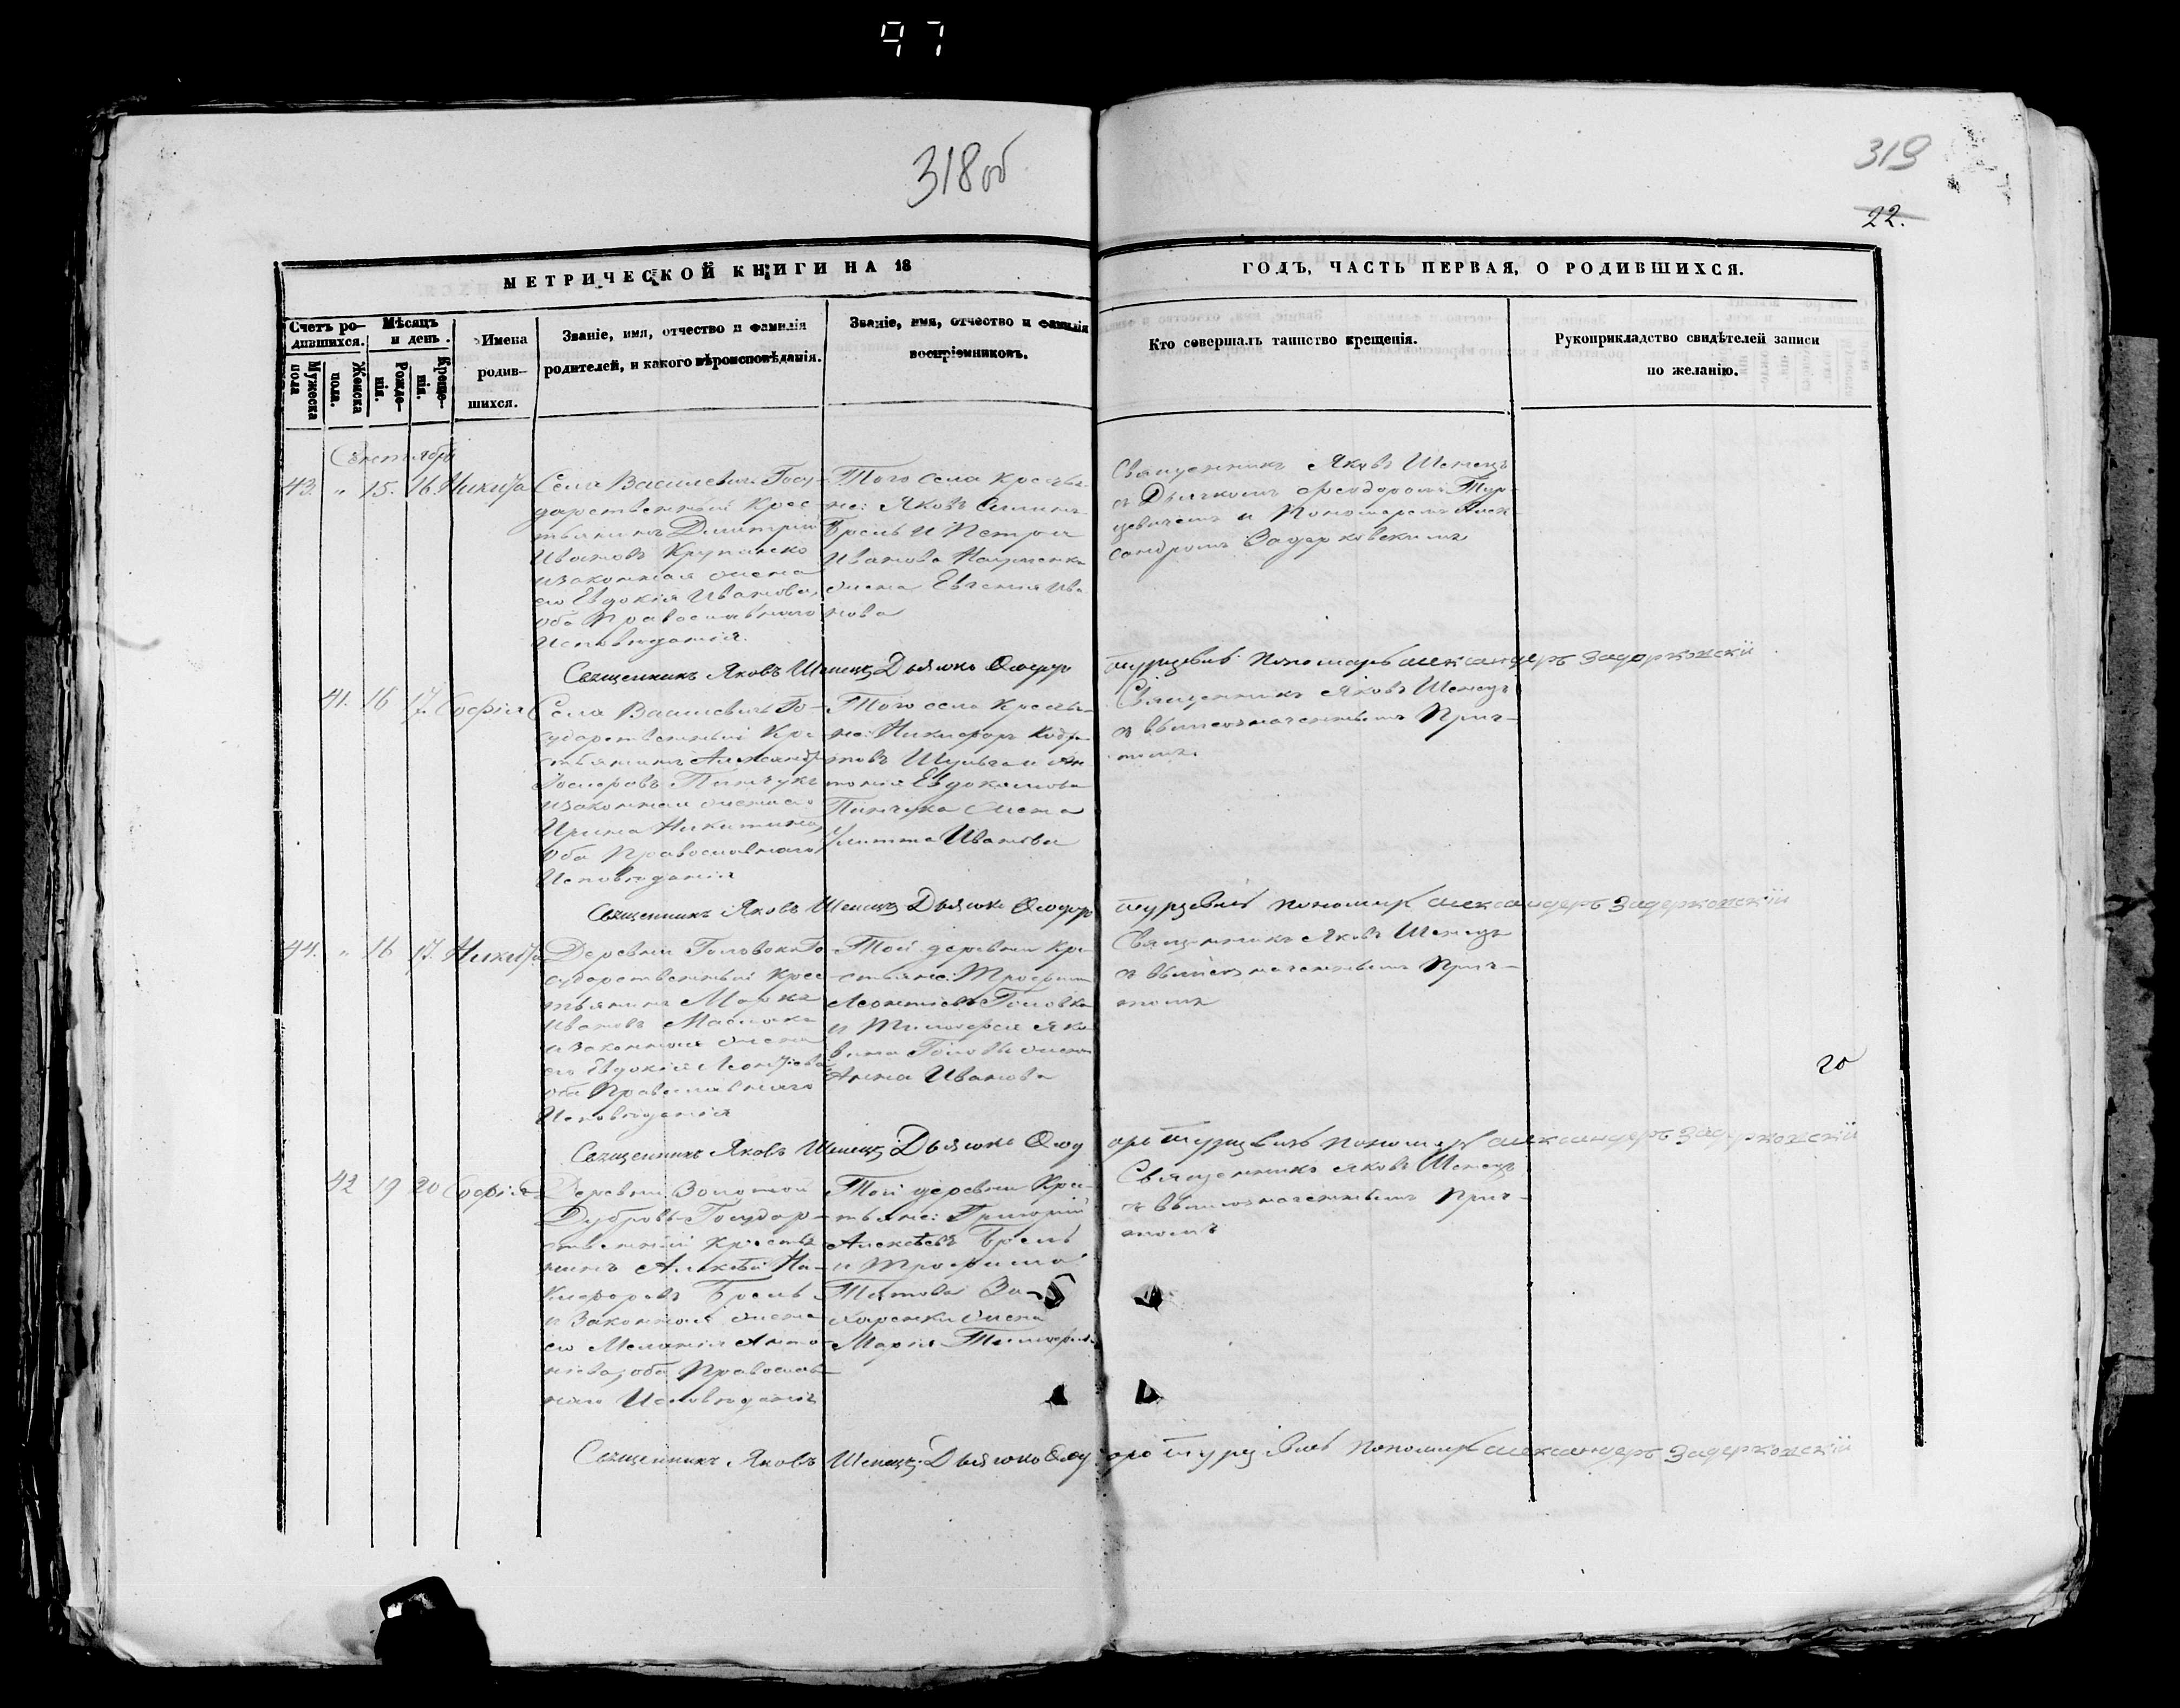 97
318об
319
22.
МЕТРИЧЕСКОЙ КНИГИ НА 18
ГОДЪ, ЧАСТЬ ПЕРВАЯ, О РОДИВШИХСЯ.
Счетъ ро-
дившихся.
Мужеска пола
Женска пола.
Мѣсяцъ
и день.
Рожде-
нія.
Креще-
нія.
Имена
родив-
шихся.
Званіе, имя, отчество и фамилія
родителей, и какого вѣроисповѣданія.
Званіе, имя, отчество и фамилія
воспріемниковъ.
Кто совершалъ таинство крещенія.
Рукоприкладство свидѣтелей записи
по желанію.
Сентябрь
43. " 15. 16. Никита
Села Василевичъ Госу-
дарственный Крес
тьянинъ Димитрій
Ивановъ
изаконная жена
его Евдокія Иванова,
оба Православнаго
Исповѣданія.
Того села Крестья-
не: Яковъ
Брель и Петра
Иванова Науменка
жена Евгенія Ива
нова
Священникъ Яковъ Шенецъ
съ Дьячкомъ Феодоромъ Тур-
цевичемъ и Пономаремъ Алек
сандромъ Задерковскимъ
Священникъ Яковъ Шенецъ Дьячокъ Ѳеодоръ Турцевичъ Пономарь Александеръ Задерковскій
41. 16 17. Софія
Села Василевичъ Го-
сударственный Кре
стьянинъ Александръ
Пинчукъ
изаконная жена его
Ирина Никитина,
оба Православнаго
Исповѣданія
Того села Крестья-
не: Никифоръ
товъ Шульга и Ан
тонія Евдокимова
Пинчука жена
Улитта Иванова
Священникъ Яковъ Шенецъ
съ вышеозначеннымъ Прич-
томъ.
Священникъ Яковъ Шенецъ Дьячокъ Ѳеодоръ Турцевичъ Пономарь Александеръ Задерковскій
44. " 16 17. Никита
Деревни Головокъ Го
сударственный Крес
тьянинъ Марко
Ивановъ
и законная жена
его Евдокія Леонтіева
оба Православнаго
Исповѣданія
Той деревни Кре
стьяне: Трофимъ
Леонтіевъ Головка
и Тимофея Яко
влева жена
Анна Иванова
Священникъ Яковъ Шенецъ
съ вышеозначеннымъ Прич-
томъ
20
Священникъ Яковъ Шенецъ Дьячокъ Ѳеодоръ Турцевичъ Пономарь Александеръ Задерковскій
42 19 20 Софія
Деревни Золотой
Дубровы Государ-
ственный Кресть
янинъ Алексѣй Ни-
кифоровъ Брель
и Законная жена
его Меланія Анто
ніева; оба Православ-
наго Исповѣданія
Той деревни Крес-
тьяне: Григорій
Алексѣевъ Брель
и Трофима
Титова За-
харенки жена
Марія
Священникъ Яковъ Шенецъ
съ вышеозначеннымъ Прич-
томъ
Священникъ Яковъ Шенецъ Дьячокъ Ѳеодоръ Турцевичъ Пономарь Александеръ Задерковскій